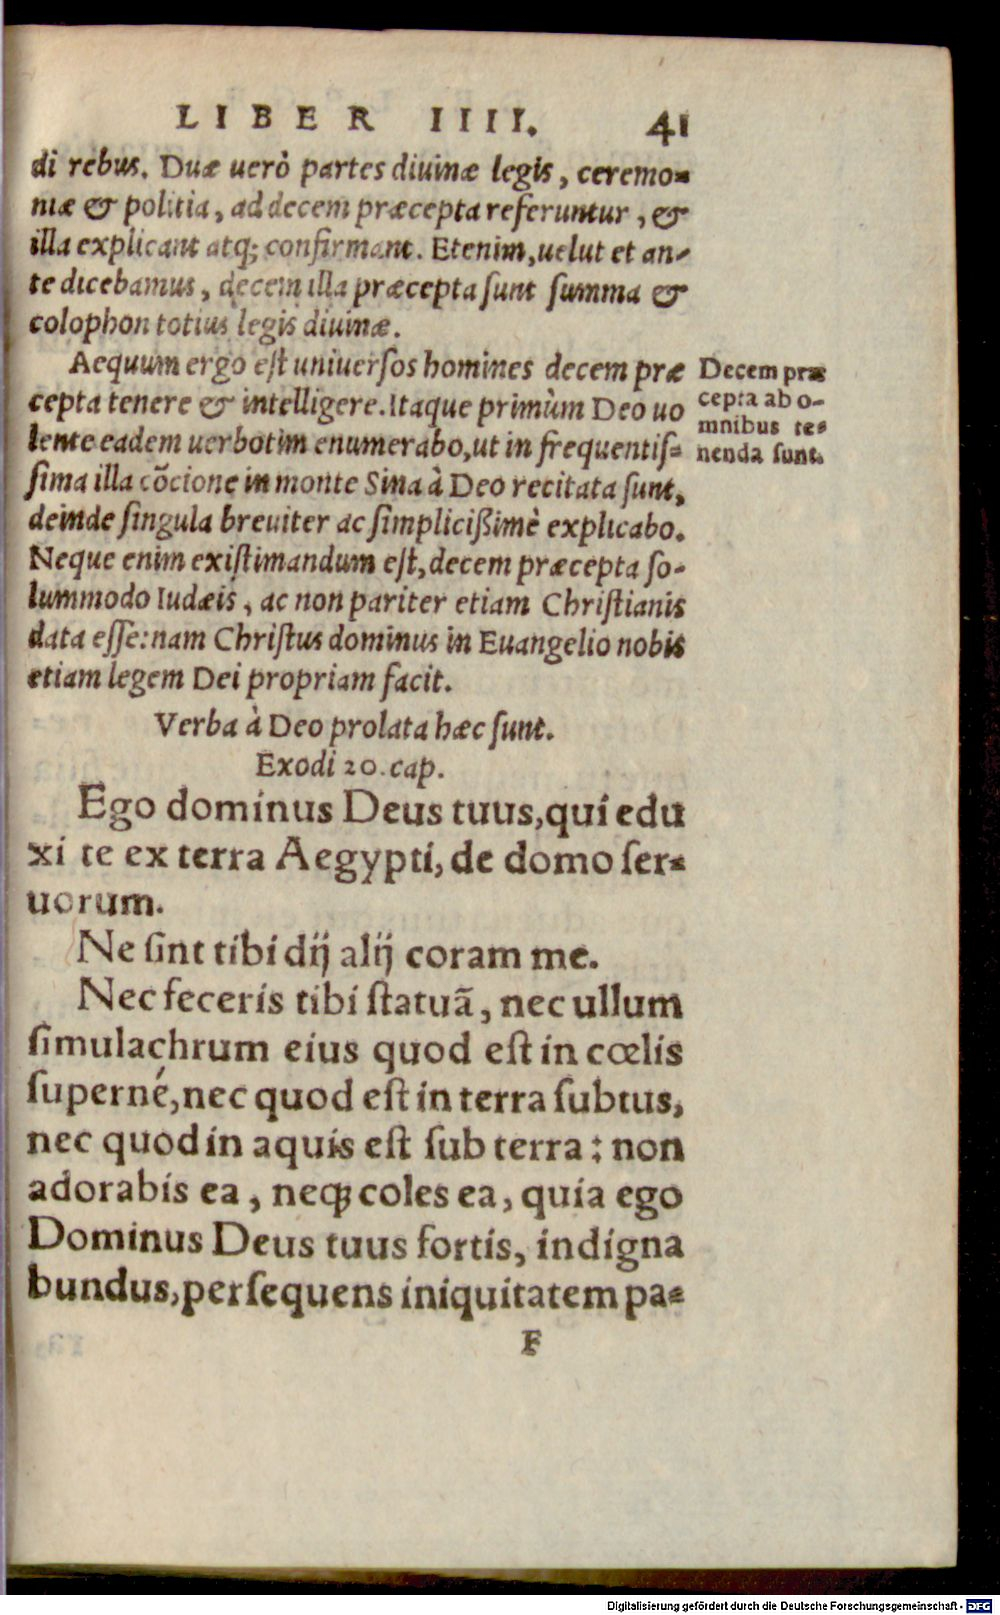 LIBER IIII. 41
di rebus. Duæ uerò partes diuinæ legis, ceremo-
niæ & politia, ad decem præcepta referuntur, &
illa explicant atq; confirmant. Etenim, uelut et an-
te dicebamus, decem illa præcepta sunt summa &
colophon totius legis diuinæ.
Aequum ergo est uniuersos homines decem præ
cepta tenere & intelligere. Itaque primùm Deo uo
lente eadem uerbotim enumerabo, ut in frequentis-
sima illa cōcione in monte Sina à Deo recitata sunt,
deinde singula breuiter ac simplicißimè explicabo.
Neque enim existimandum est, decem præcepta so-
lummodo Iudæis, ac non pariter etiam Christianis
data esse: nam Christus dominus in Euangelio nobis
etiam legem Dei propriam facit.
Decem præ
cepta ab o-
mnibus te-
nenda sunt.
Verba à Deo prolata hæc sunt.
Exodi 20. cap.
Ego dominus Deus tuus, qui edu
xi te ex terra Aegypti, de domo ser-
uorum.
Ne sint tibi dij alij coram me.
Nec feceris tibi statuā, nec ullum
simulachrum eius quod est in cœlis
superné, nec quod est in terra subtus,
nec quod in aquis est sub terra: non
adorabis ea, neq; coles ea, quia ego
Dominus Deus tuus fortis, indigna
bundus, persequens iniquitatem pa-
F
Digitalisierung gefördert durch die Deutsche Forschungsgemeinschaft - DFG